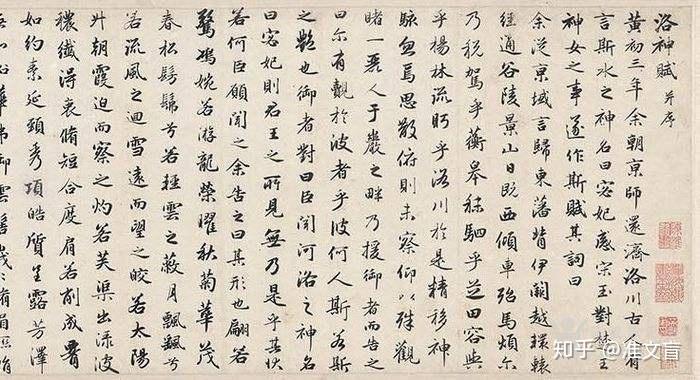 洛神賦 并序
黃初三年余朝京師還濟洛川古人有
言斯水之神名曰宓妃感宋玉對楚王
神女之事遂作斯賦其詞曰
余從京域言歸東藩背伊闕越轘轅
經通谷陵景山日既西傾車殆馬煩爾
乃稅駕乎蘅皋秣駟乎芝田容與
乎楊林流眄乎洛川於是精移神
駭忽焉思散俯則未察仰以殊觀
睹一麗人于巖之畔乃援御者而告之
曰尔有覿於彼者乎彼何人斯若斯
之艷也御者對曰臣聞河洛之神名
曰宓妃則君王之所見無乃是乎其狀
若何臣願聞之余告之曰其形也翩若
驚鴻婉若游龍榮曜秋菊華茂
春松髣髴兮若輕雲之蔽月飄飄兮
若流風之迴雪遠而望之皎若太陽
升朝霞迫而察之灼若芙蕖出淥波
穠纖得衷脩短合度肩若削成腰
如約素延頸秀項皓質呈露芳澤
知乎 @准文盲